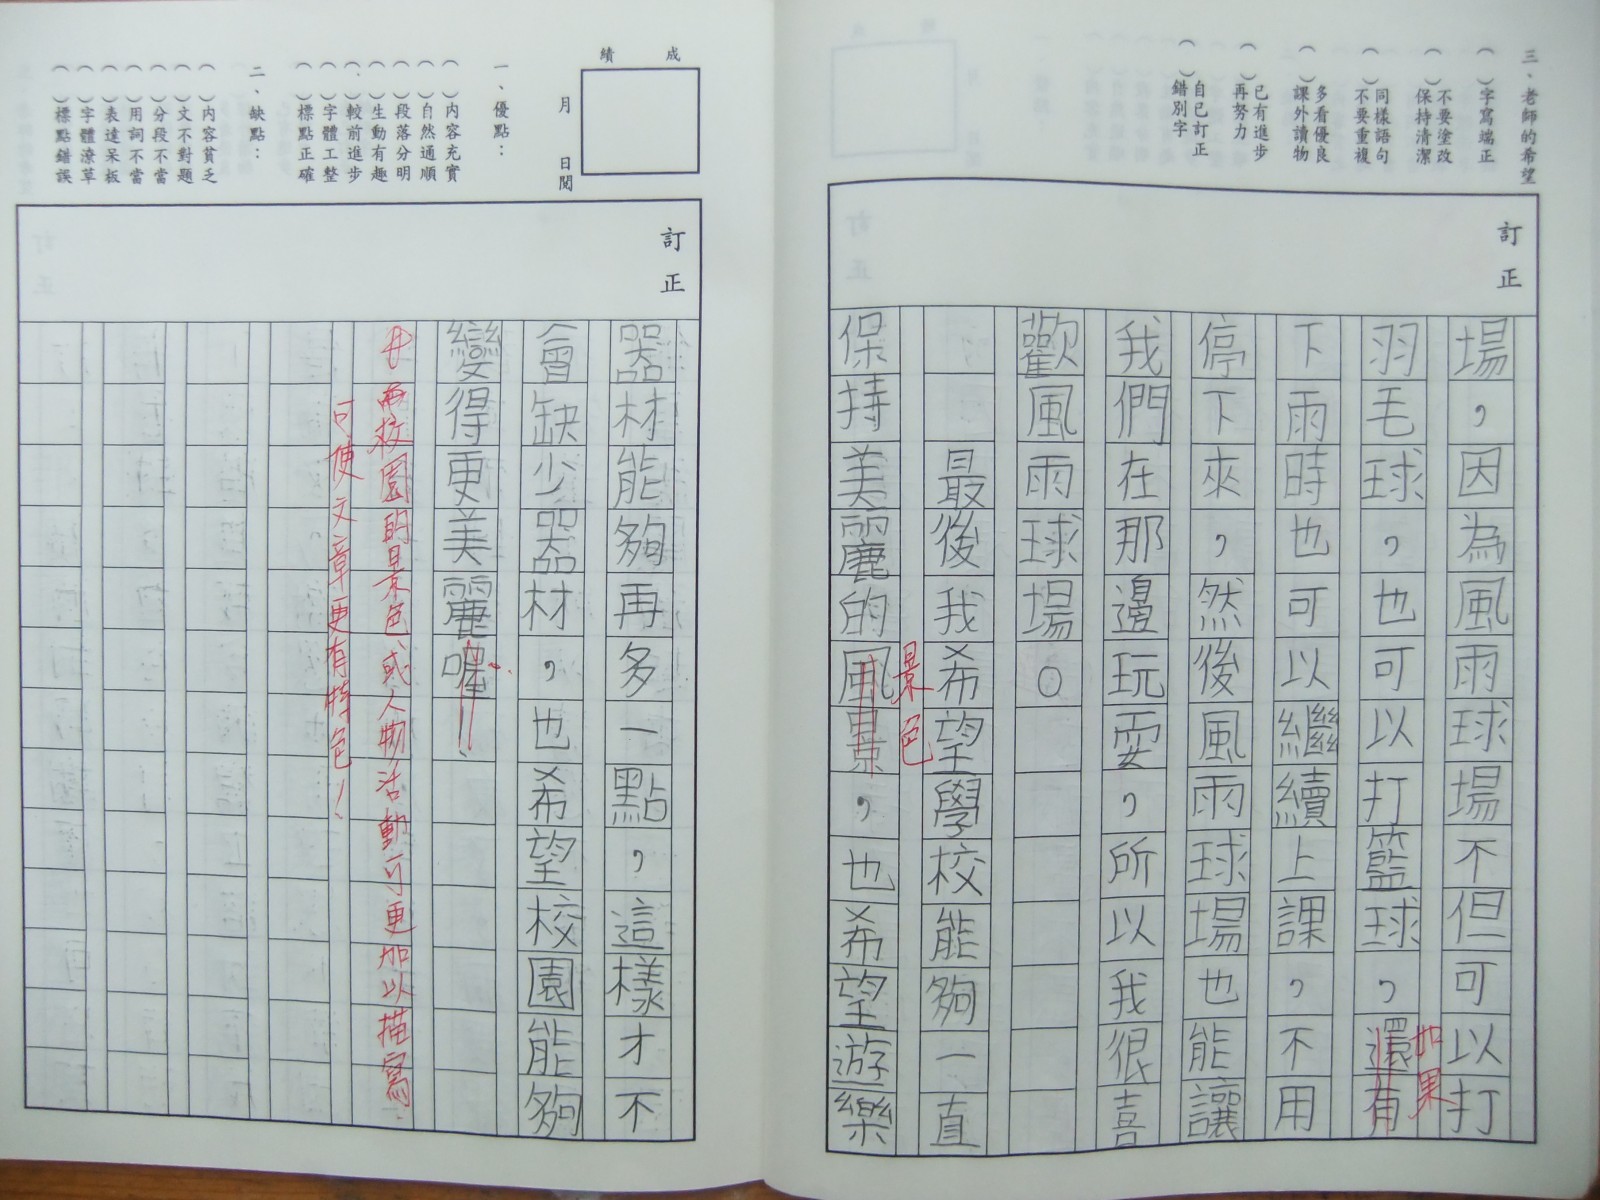 三、老師的希望
（　）字寫端正
（　）不要塗改保持清潔
（　）同樣語句不要重複
（　）多看優良課外讀物
（　）已有進步再努力
（　）自己訂正錯別字
訂正
場，因為風雨球場不但可以打
羽毛球，也可以打籃球，還有
如果
下雨時也可以繼續上課，不用
停下來，然後風雨球場也能讓
我們在那邊玩耍，所以我很喜
歡風雨球場。
最後我希望學校能夠一直
景色
保持美麗的風景，也希望遊樂
成績
月　日閱
一、優點：
（　）內容充實
（　）自然通順
（　）段落分明
（　）生動有趣
（　）較前進步
（　）字體工整
（　）標點正確
二、缺點：
（　）內容貧乏
（　）文不對題
（　）分段不當
（　）用詞不當
（　）表達呆板
（　）字體潦草
（　）標點錯誤
訂正
器材能夠再多一點，這樣才不
會缺少器材，也希望校園能夠
變得更美麗喔！
校園的景色或人物活動可更加以描寫.
可使文章更有特色！